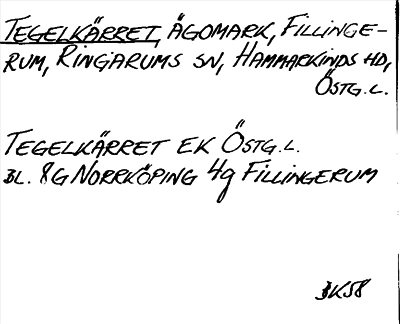 TEGELKÄRRET, ÄGOMARK, FILLINGE-
RUM, RINGARUMS SN, HAMMARKINDS HD,
ÖSTG.L.
TEGELKÄRRET EK ÖSTG.L.
BL. 8G NORRKÖPING 4g FILLINGERUM
BK58